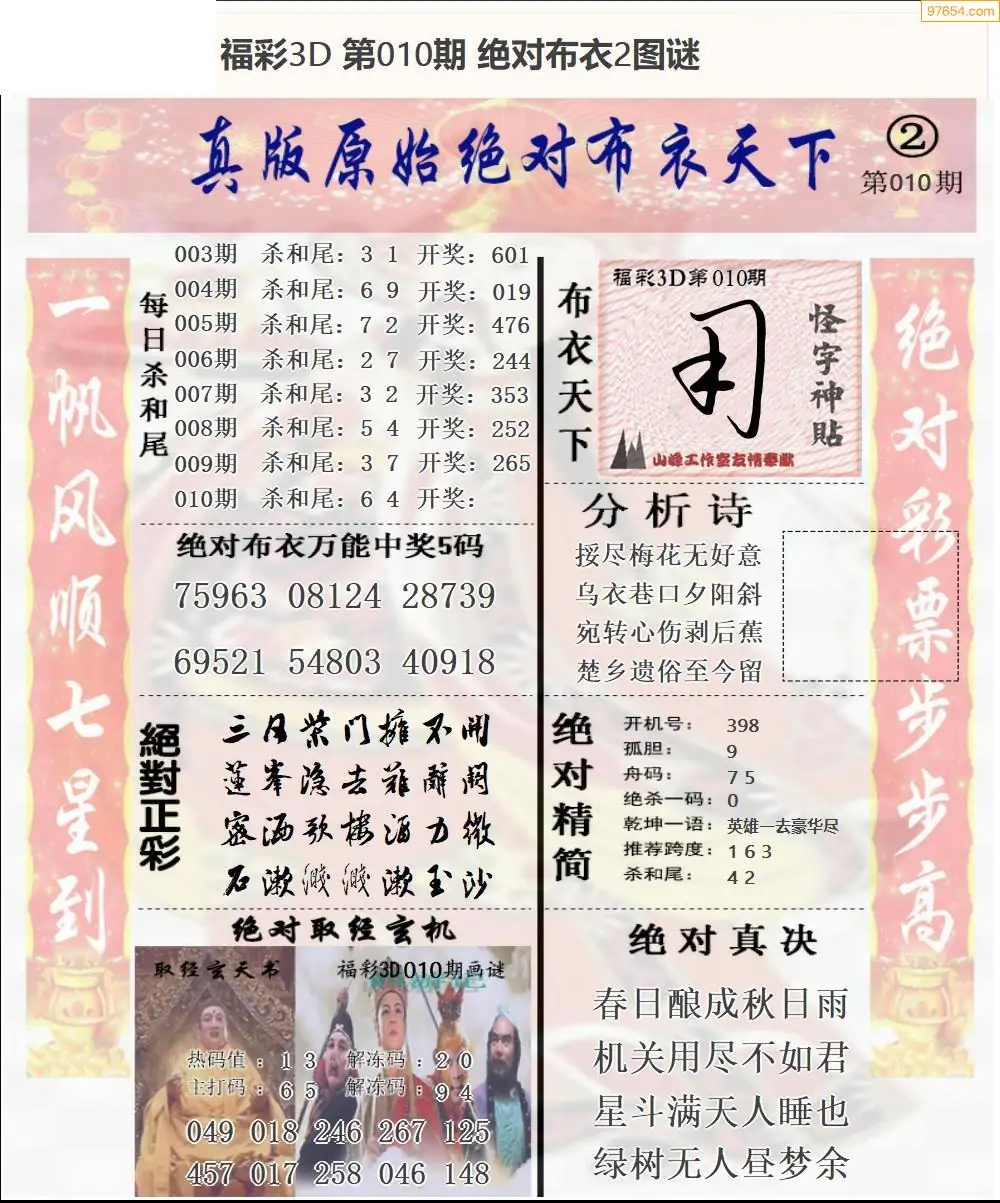 97654.com
福彩3D 第010期 绝对布衣2图谜
真版原始绝对布衣天下
②
第010期
一帆风顺七星到
每日杀和尾
003期 杀和尾：3 1 开奖：601
004期 杀和尾：6 9 开奖：019
005期 杀和尾：7 2 开奖：476
006期 杀和尾：2 7 开奖：244
007期 杀和尾：3 2 开奖：353
008期 杀和尾：5 4 开奖：252
009期 杀和尾：3 7 开奖：265
010期 杀和尾：6 4 开奖：
绝对布衣万能中奖5码
75963 08124 28739
69521 54803 40918
絕對正彩
三月柴门擁不開
蓮峯隐去難辭閞
密洒歌樓酒力微
石漱濺濺漱玉沙
绝对取经玄机
取经玄天书
福彩3D010期画谜
热码值：1 3 解冻码：2 0
主打码：6 5 解冻码：9 4
049 018 246 267 125
457 017 258 046 148
布衣天下
福彩3D第010期
怪字神貼
山峰工作室友情奉献
分析诗
挼尽梅花无好意
乌衣巷口夕阳斜
宛转心伤剥后蕉
楚乡遗俗至今留
绝对精简
开机号：398
孤胆：9
舟码：7 5
绝杀一码：0
乾坤一语：英雄一去豪华尽
推荐跨度：1 6 3
杀和尾：4 2
绝对真决
春日酿成秋日雨
机关用尽不如君
星斗满天人睡也
绿树无人昼梦余
绝对彩票步步高